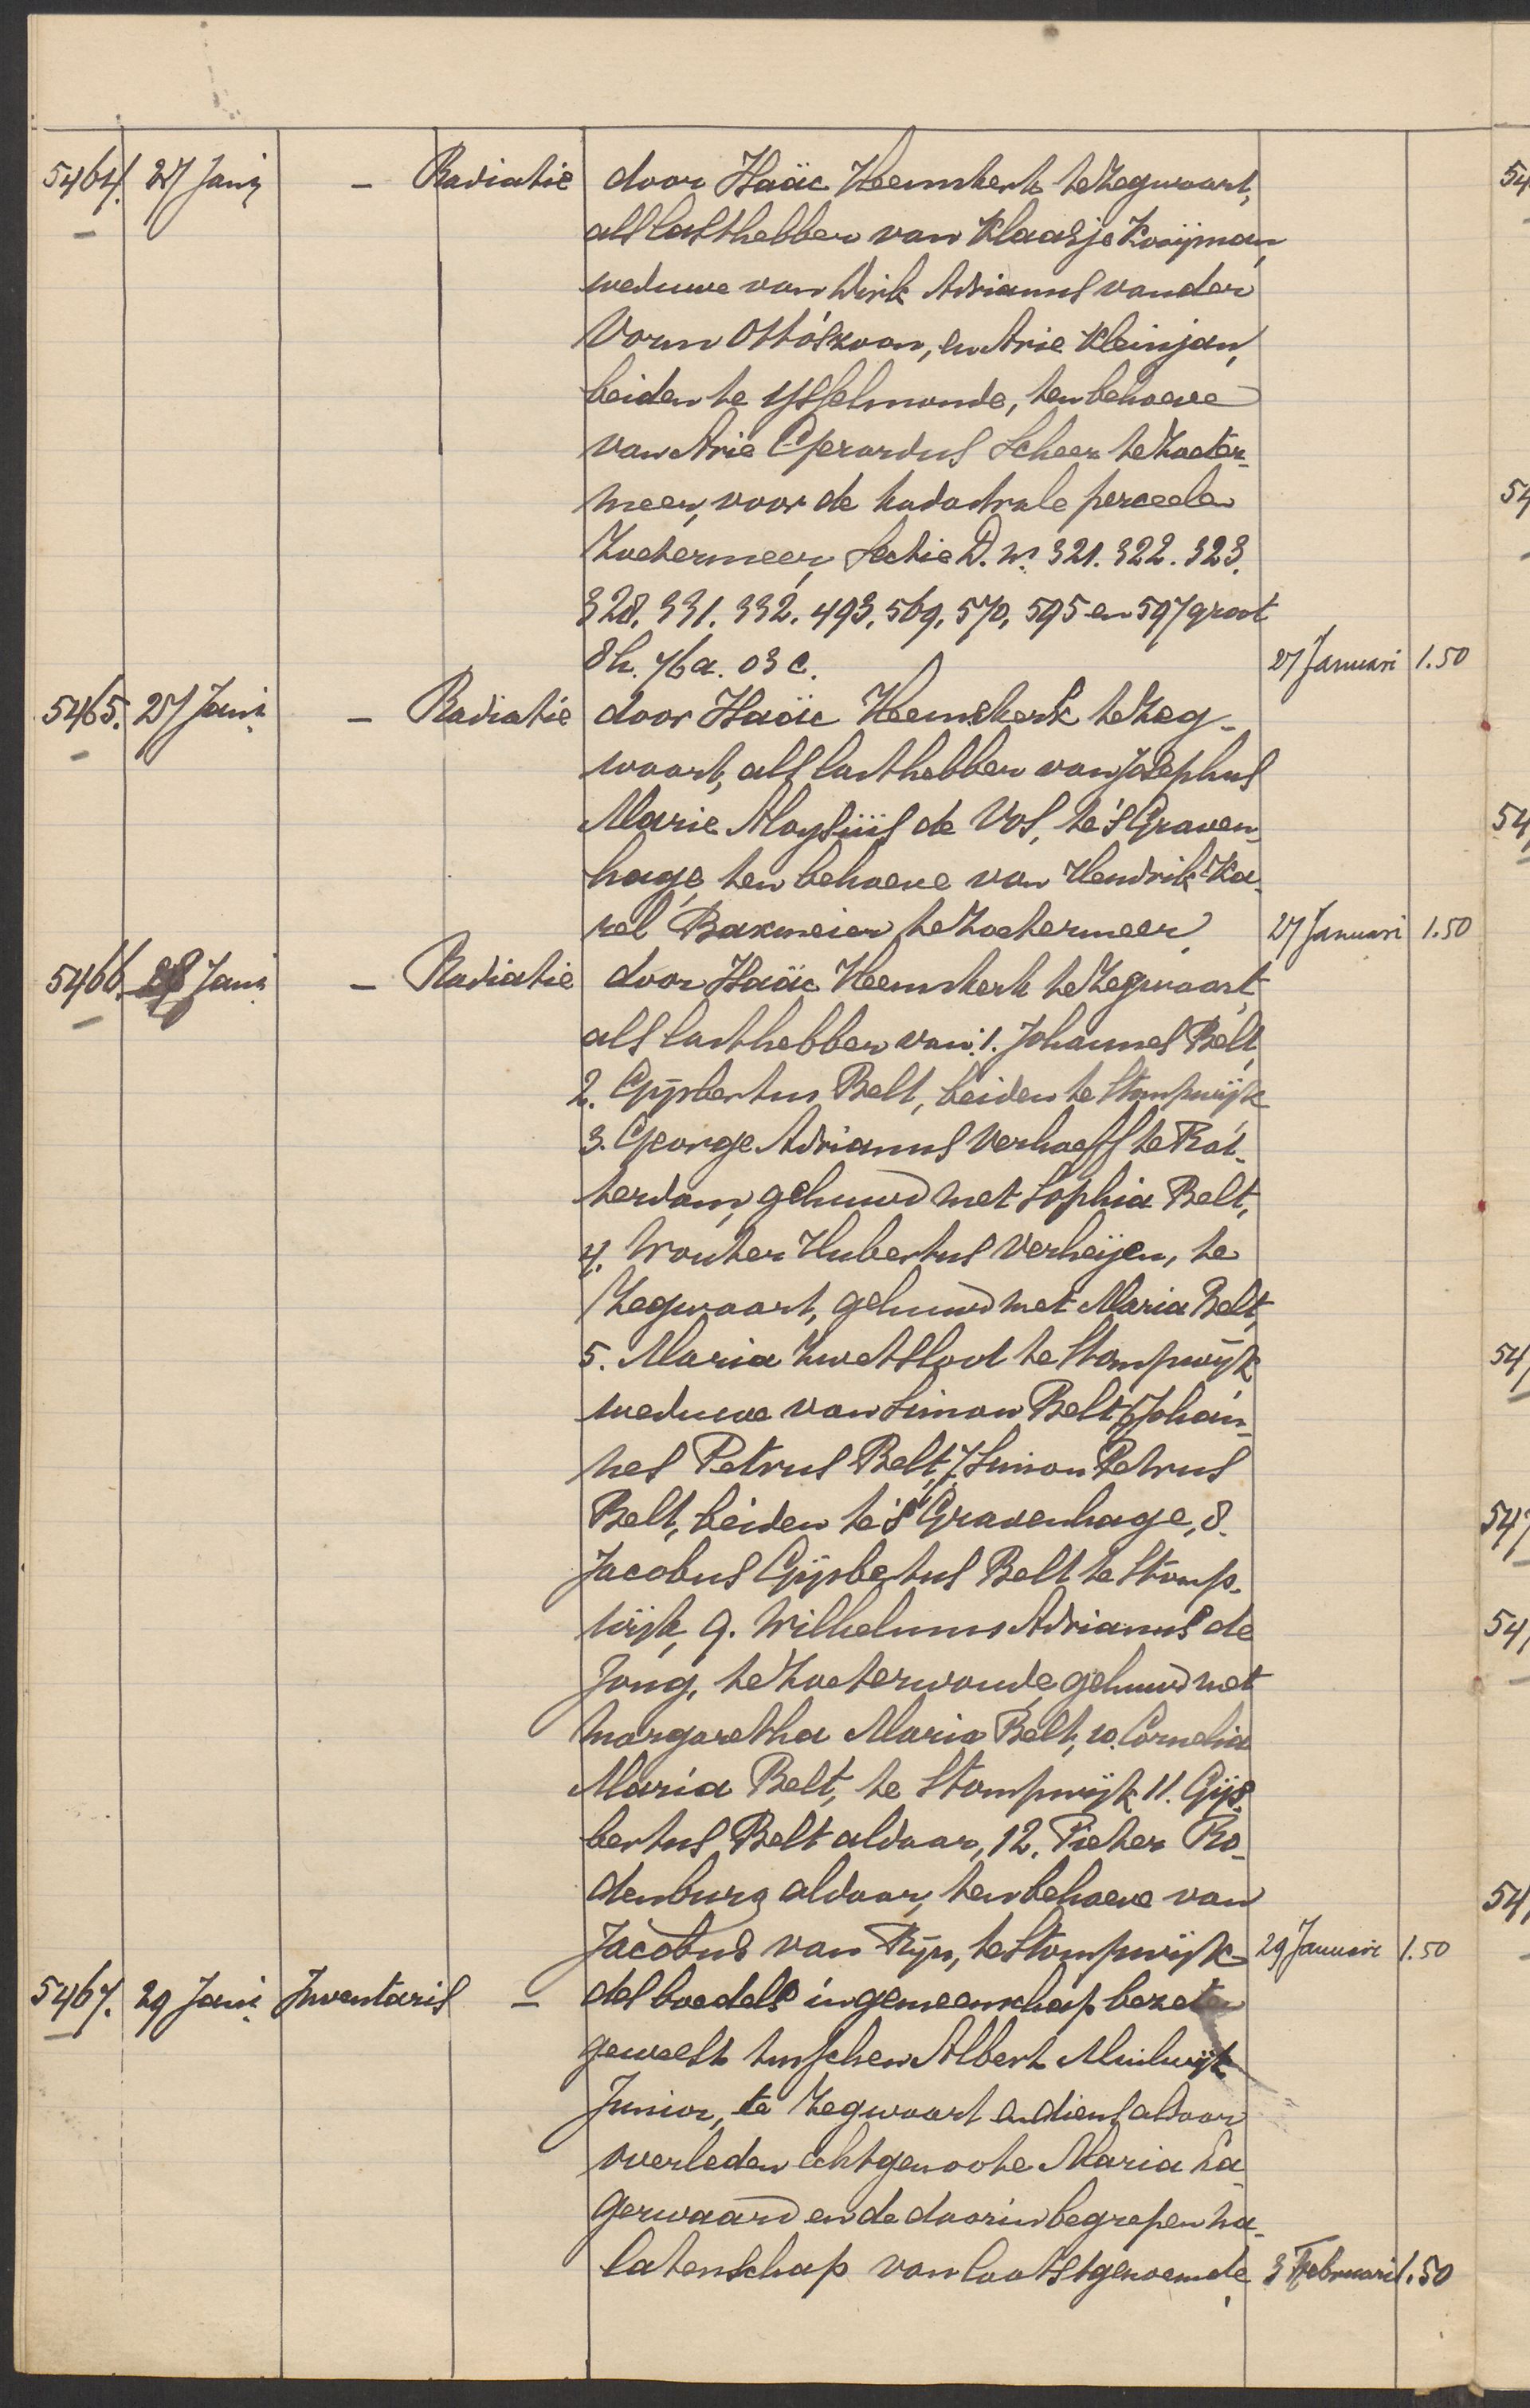 5464. 27 Jani – Radiatie door Isaäc Heemskerk te Zegwaart,
als lasthebber van Klaasje Kooijman,
weduwe van Dirk Adrianus van der
Vorm Ottószoon, en Arie Kleinjan,
beiden te IJsselmonde, ten behoeve
van Arie Gerardus Scheer te Zoeter-
meer, voor de kadastrale perceelen
Zoetermeer, Sectie D. nos. 321. 322. 323.
328. 331. 332. 493. 569. 570. 595 en 597 groot
8 h. 76 a. 03 c. 27 Januari 1.50
5465. 27 Jani – Radiatie door Isaäc Heemskerk te Zeg-
waart, als lasthebber van Josephus
Marie Aloysiüs de Vos, te 's Graven-
hage, ten behoeve van Hendrik Ka-
rel Baxmeier te Zoetermeer. 27 Januari 1.50
5466. 28 Jani – Radiatie door Isaäc Heemskerk te Zegwaart,
als lasthebber van: 1. Johannes Belt,
2. Gijsbertus Belt, beiden te Stompwijk,
3. George Adrianus Verhoeff te Rot-
terdam, gehuwd met Sophia Belt,
4. Wouter Hubertus Verheijen, te
Zegwaart, gehuwd met Maria Belt,
5. Maria Zwetsloot te Stompwijk,
weduwe van Simon Belt, 6. Johan-
nes Petrus Belt, 7. Simon Petrus
Belt, beiden te 's Gravenhage, 8.
Jacobus Gijsbertus Belt te Stomp-
wijk, 9. Wilhelmus Adrianus de
Jong, te Zoeterwoude, gehuwd met
Margaretha Maria Belt, 10. Cornelia
Maria Belt, te Stompwijk 11. Gijs-
bertus Belt aldaar, 12. Pieter Ro-
denburg aldaar, ten behoeve van
Jacobus van Rijn, te Stompwijk 29 Januari 1.50
5467. 29 Jani Inventaris – des boedels in gemeenschap bezeten
geweest tusschen Albert Muilwijk
Junior, te Zegwaart en diens aldaar
overleden echtgenoote Maria La-
gerwaard en de daarin begrepen na-
latenschap van laatstgenoemde. 3 Februari 1.50